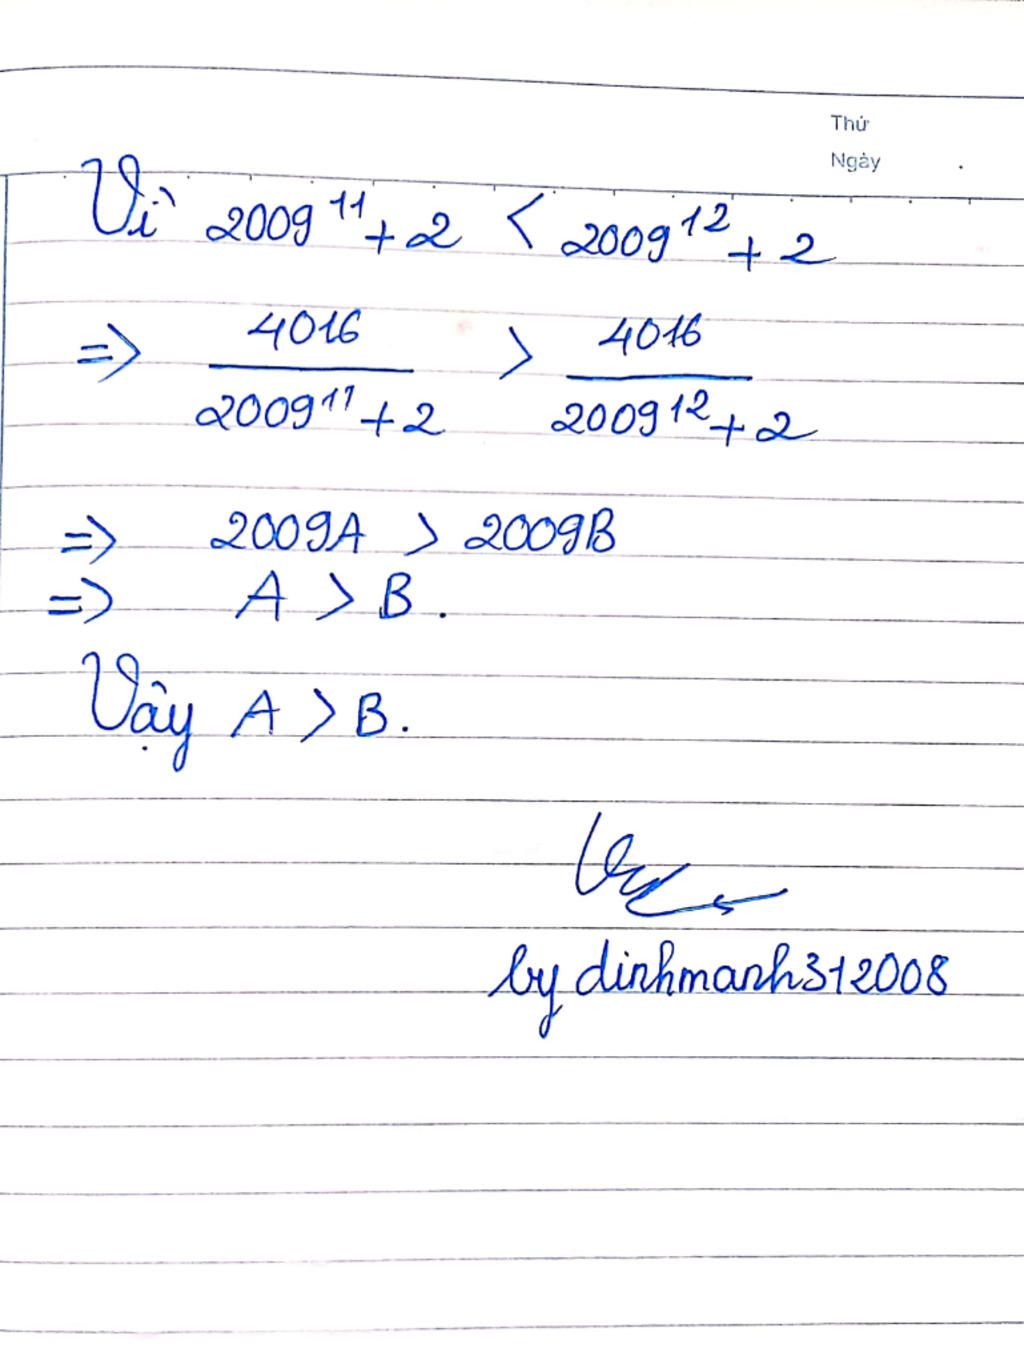 Thứ
Ngày
Vì 2009^11 + 2 < 2009^12 + 2
=> 4016 / (2009^11 + 2) > 4016 / (2009^12 + 2)
=> 2009A > 2009B
=> A > B.
Vậy A > B.
by dinhmanh312008